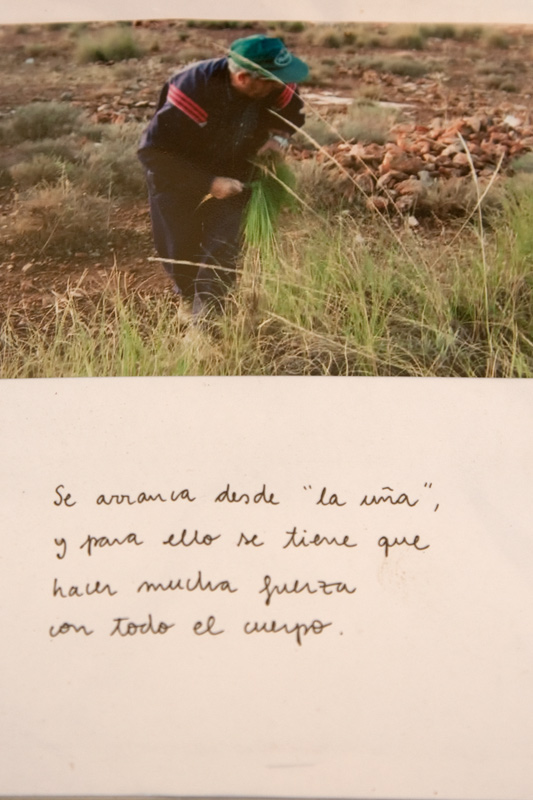 Se arranca desde "la uña",
y para ello se tiene que
hacer mucha fuerza
con todo el cuerpo.